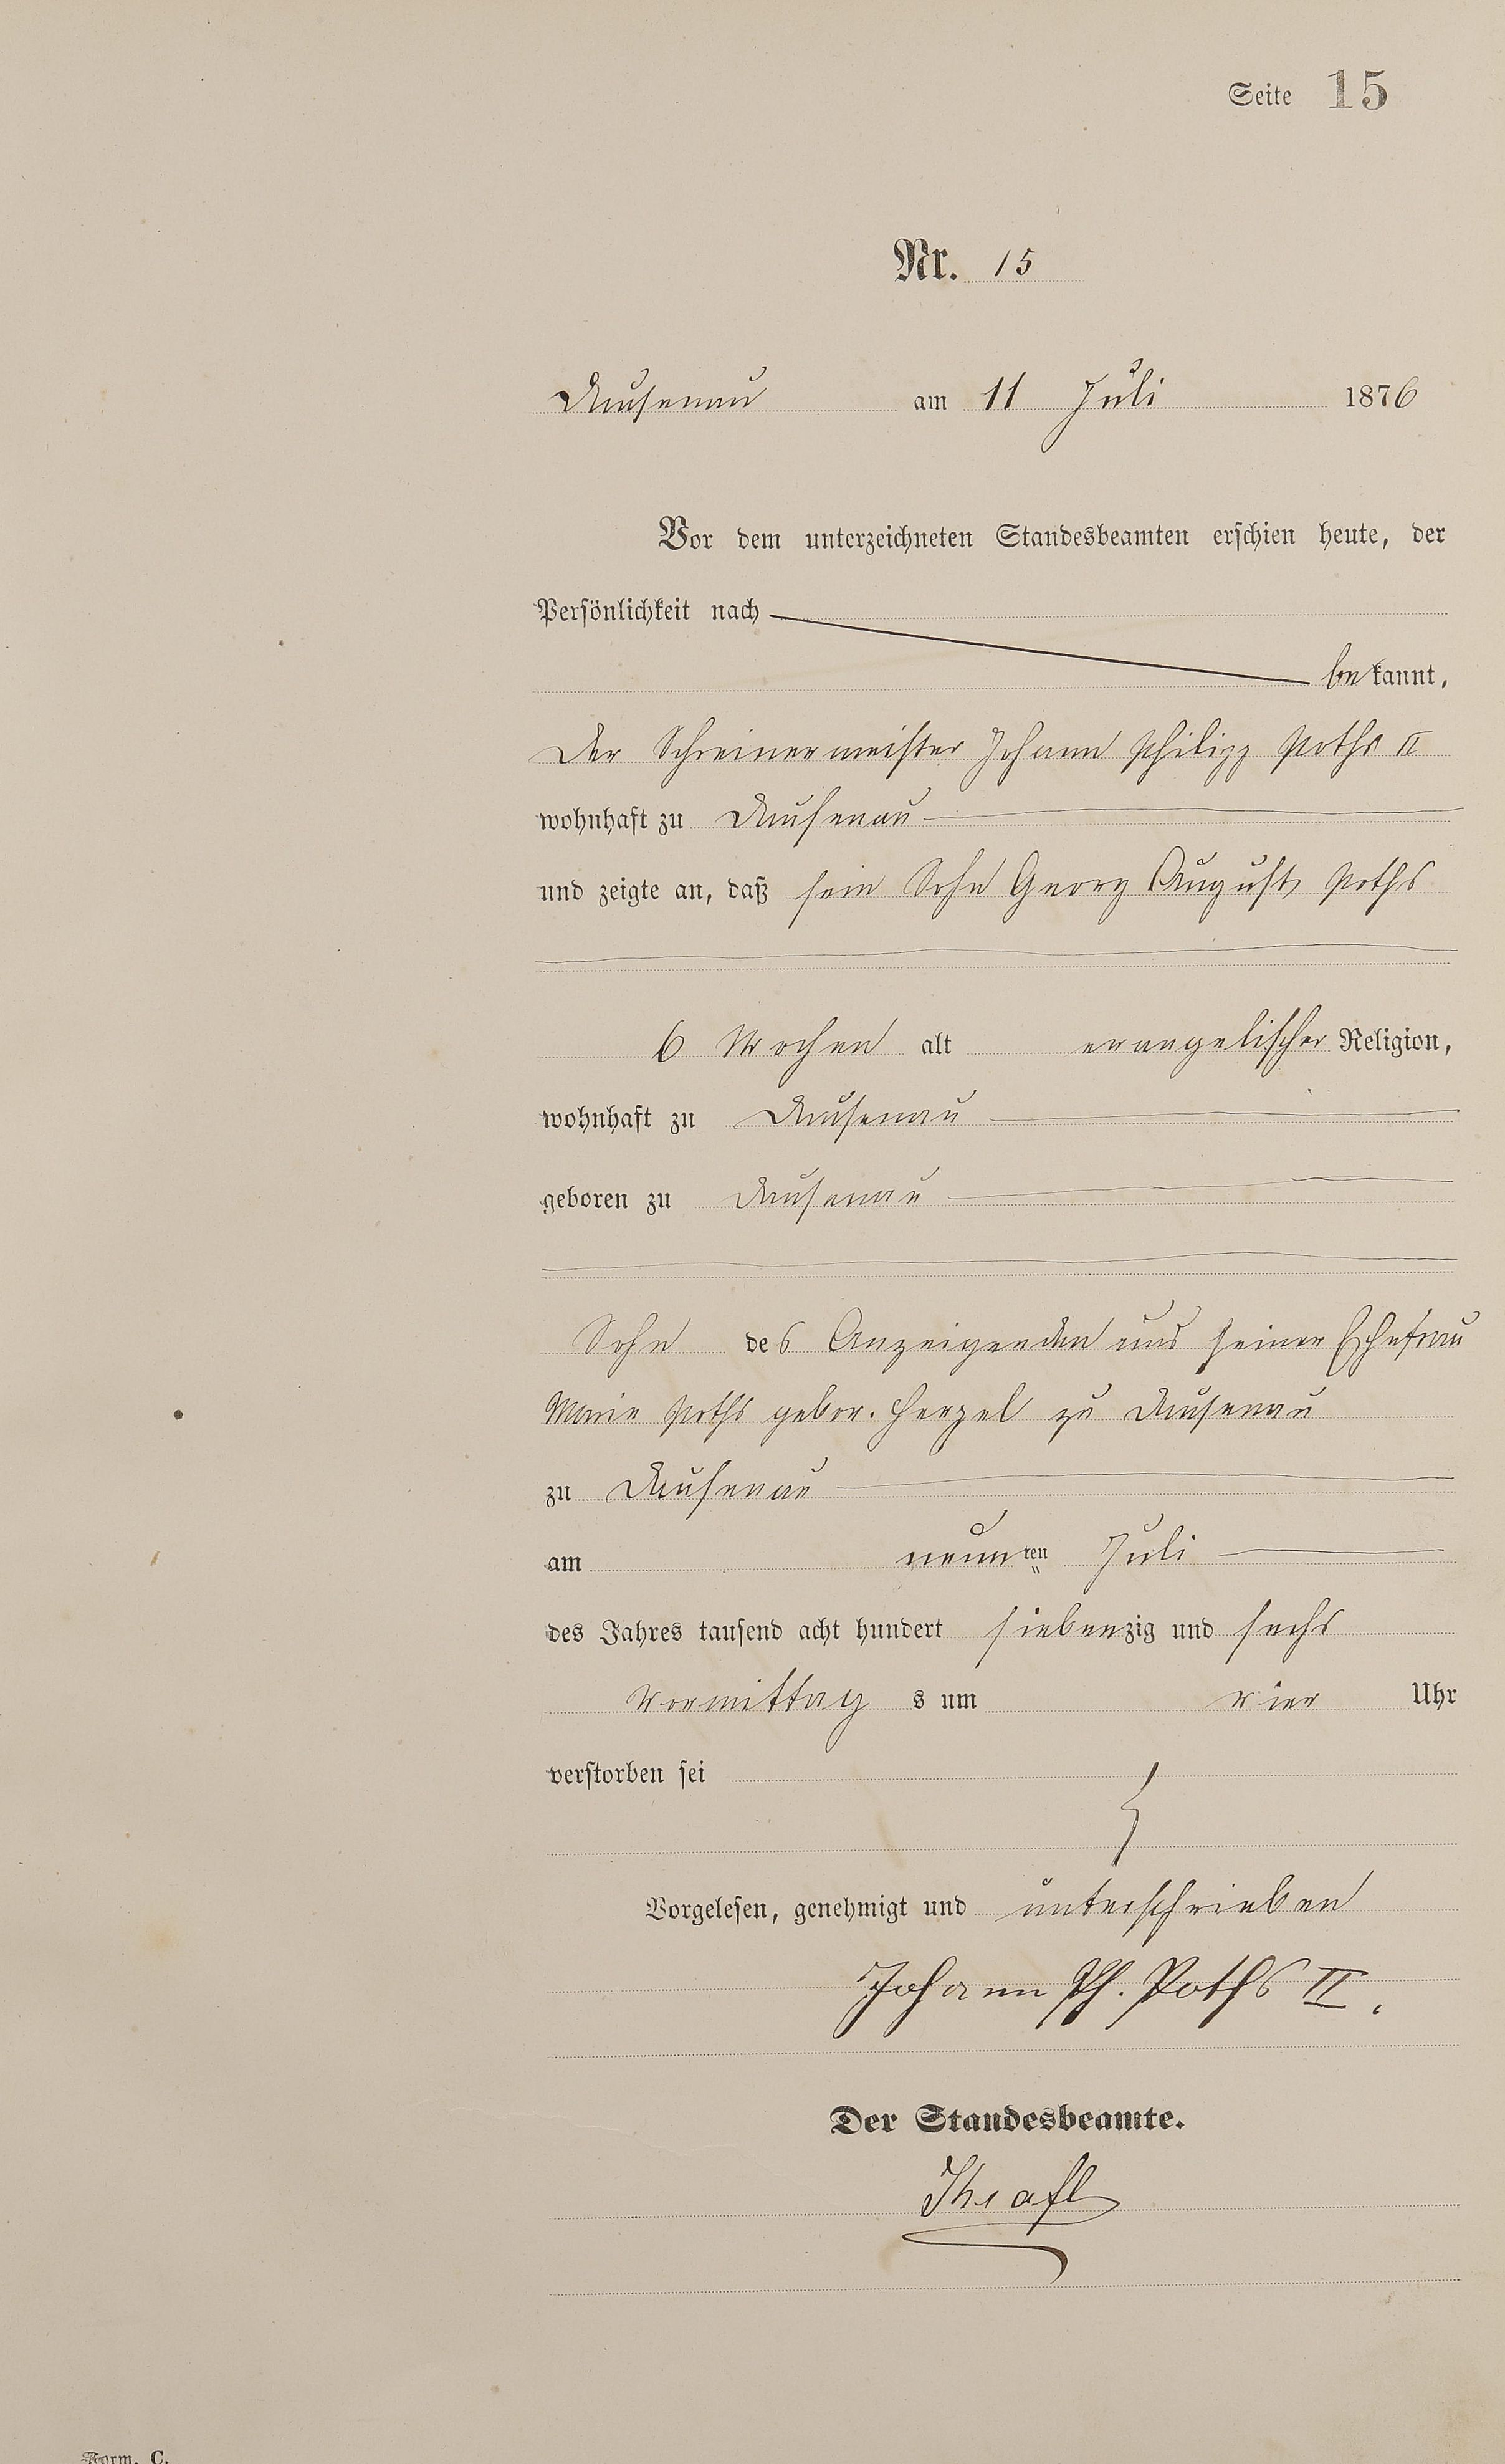 Seite 15
Nr. 15
Dausenau am 11 Juli 1876
Vor dem unterzeichneten Standesbeamten erschien heute, der
Persönlichkeit nach
bekannt,
Der Schreinermeister Johann Philipp Poths II
wohnhaft zu Dausenau
und zeigte an, daß sein Sohn Georg August Poths
6 Wochen alt evangelischer Religion,
wohnhaft zu Dausenau
geboren zu Dausenau
Sohn des Anzeigenden und seiner Ehefrau
Marie Poths gebor. Herzel zu Dausenau
zu Dausenau
am neunten Juli
des Jahres tausend acht hundert siebenzig und sechs
Vormittag s um vier Uhr
verstorben sei
Vorgelesen, genehmigt und unterschrieben
Johann Ph. Poths II.
Der Standesbeamte.
Form. C.